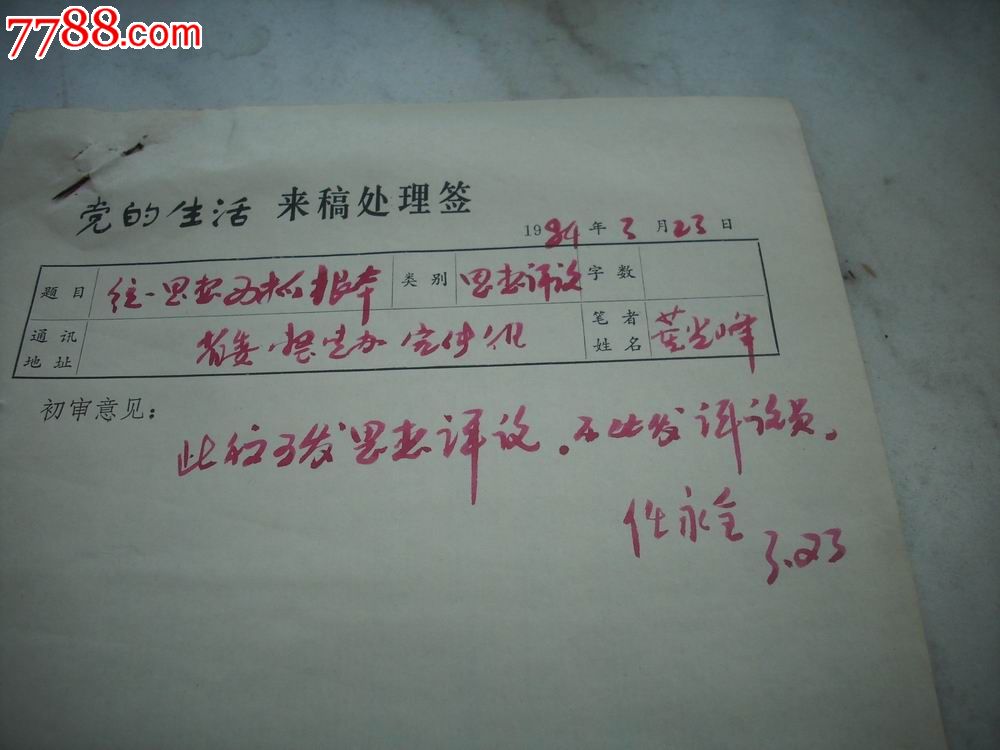 7788.com
党的生活 来稿处理签
1984年3月23日
题目 统一思想 要抓根本 类别 思想评议 字数
通讯地址 省委 整党办 宣传组 笔者姓名 董光峰
初审意见：
此稿可发思想评议。不必发评议员。
任永全
3.23